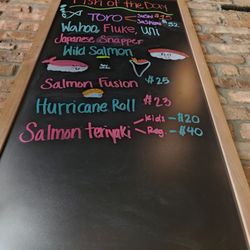 Fish of the Day
TORO
Sushi
Sashimi
Wahoo, Fluke, Uni
Japanese Snapper
Wild Salmon
Salmon Fusion $25
Hurricane Roll $23
Salmon teriyaki Kids - $20
Reg. - $40